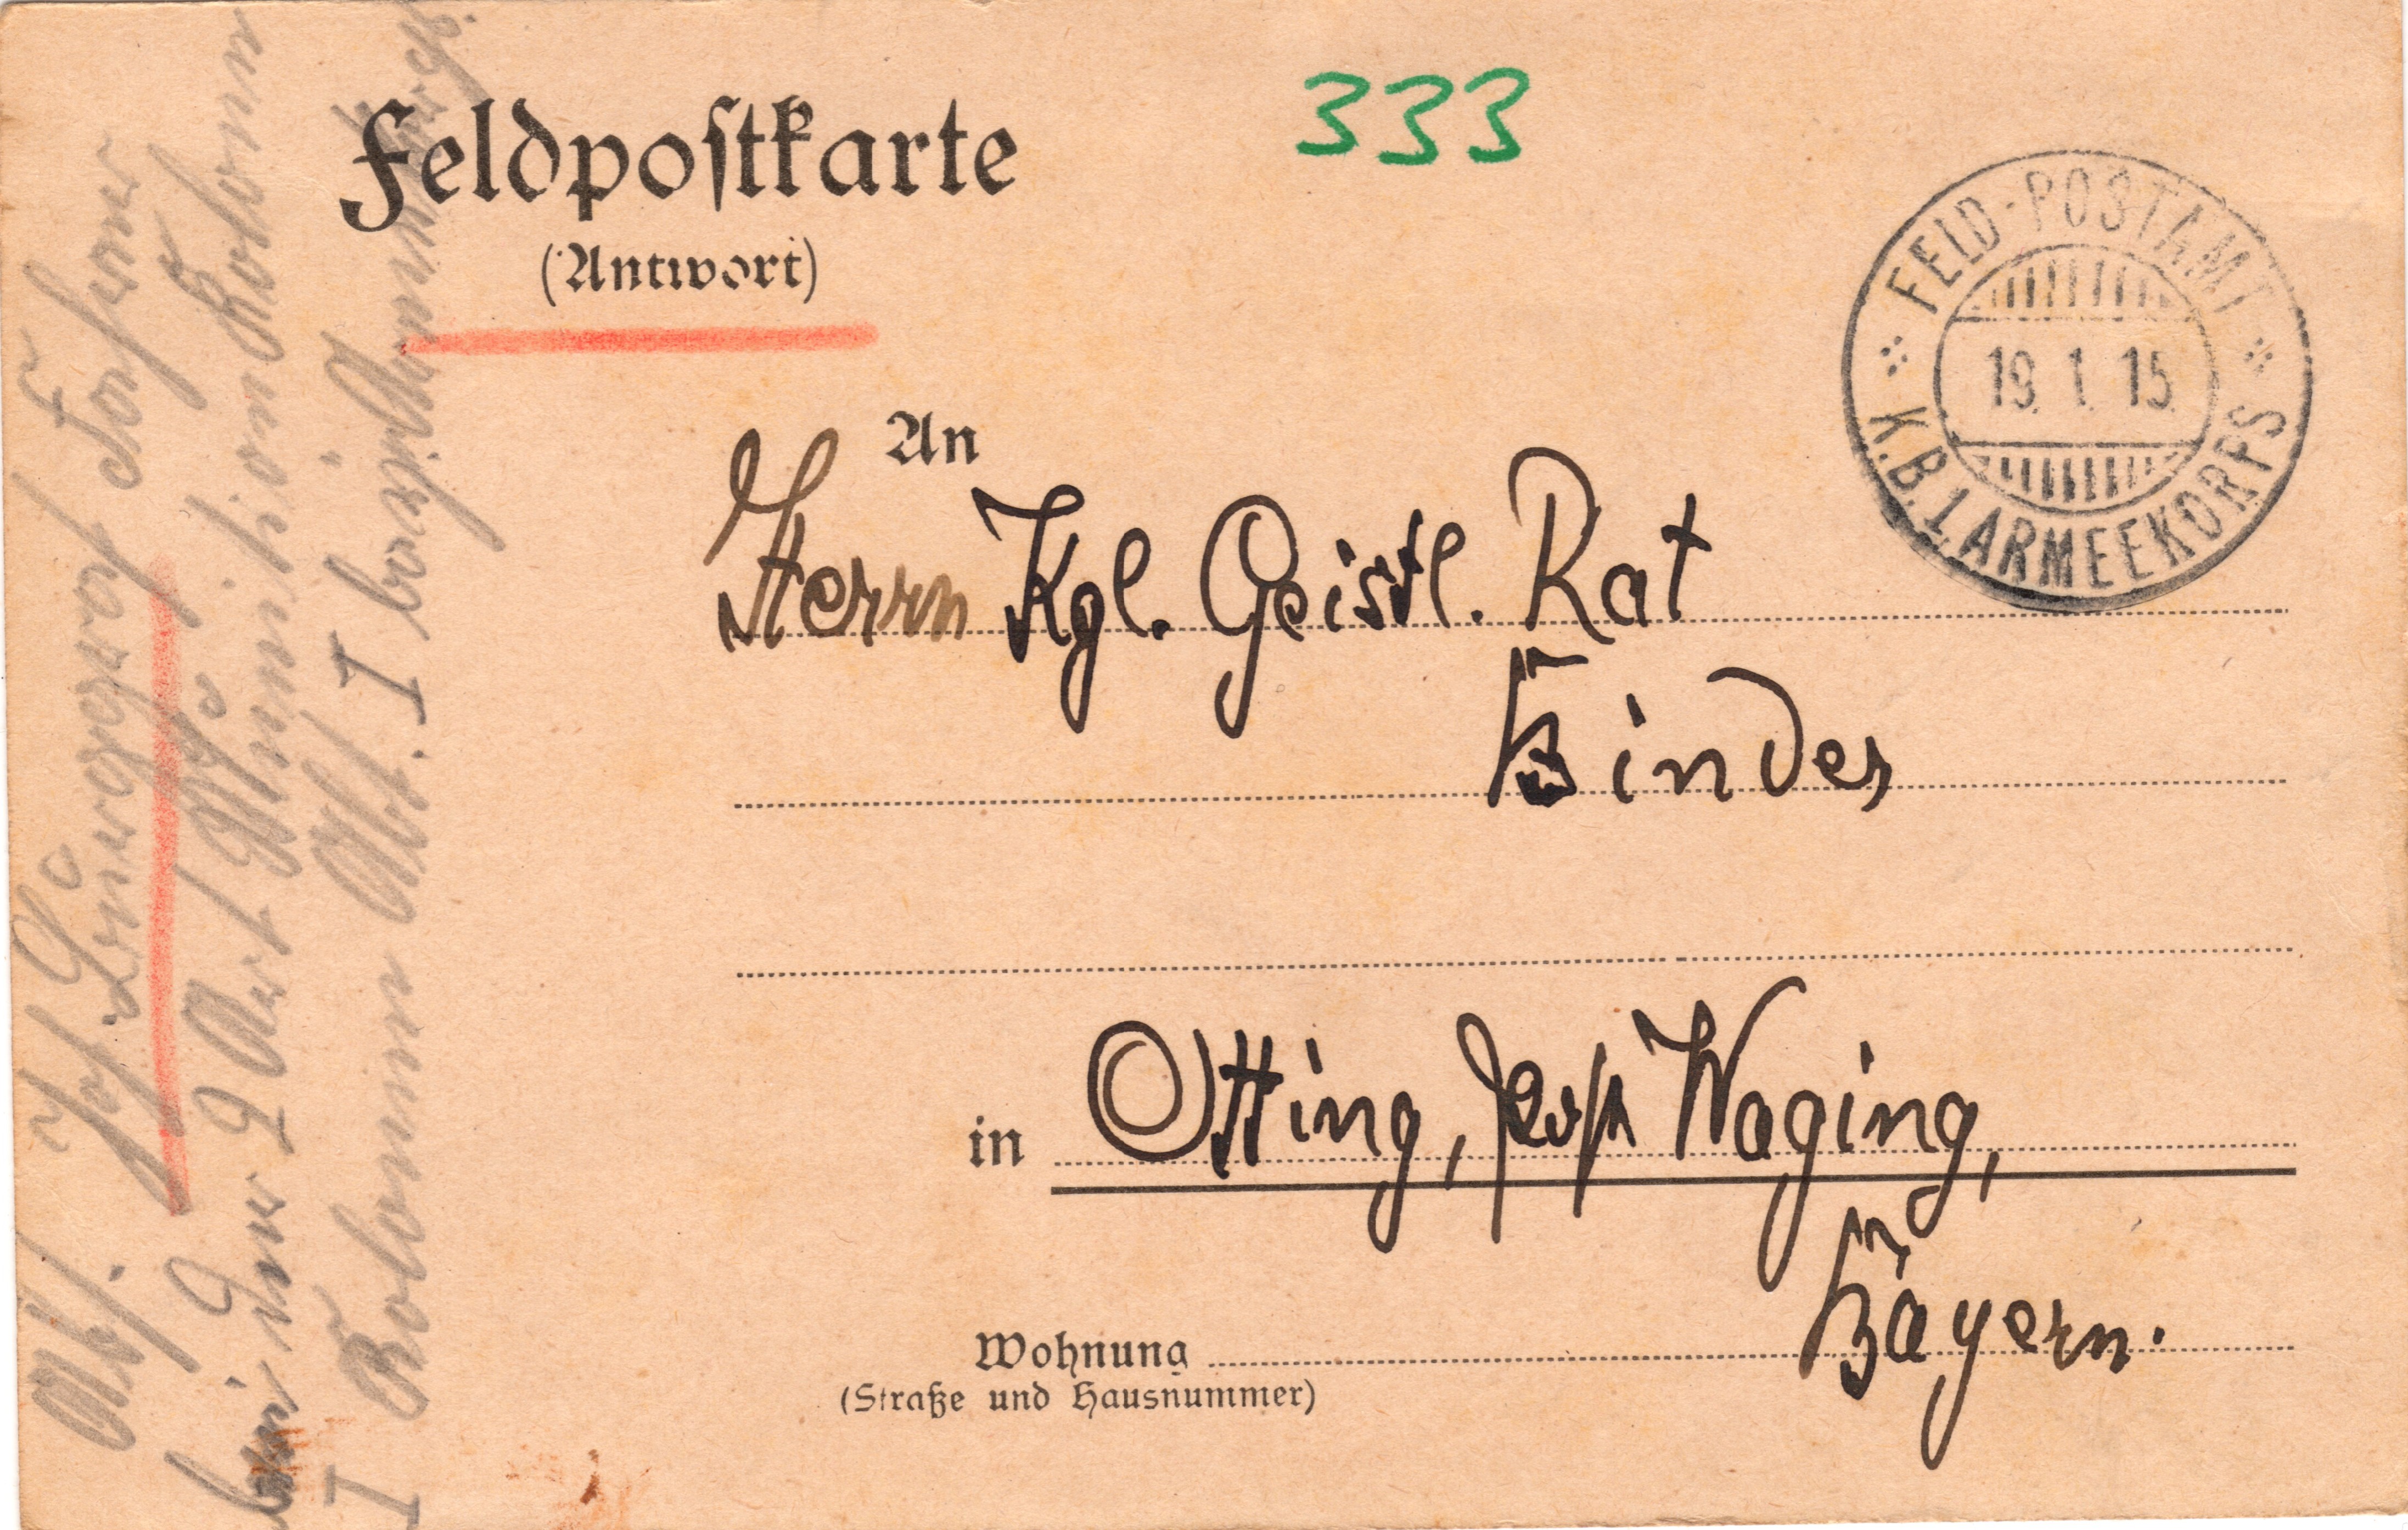 Feldpostkarte
(Antwort)
333
FELD-POSTAMT
19. 1. 15.
K.B. 1. ARMEEKORPS
An
Herrn Kgl. Geistl. Rat
Binder
in Otting, Post Waging,
Bayern.
Wohnung
(Straße und Hausnummer)
Abs. Jos
bei der 2 Munition Kolonn
I Kolonnen Abt. I